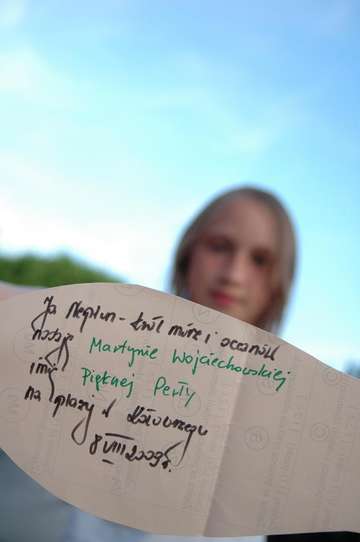 Ja Neptun - król mórz i oceanów
nadaję Martynie Wojciechowskiej
imię Pięknej Perły
na plaży w Kołobrzegu
8 VIII 2009r.